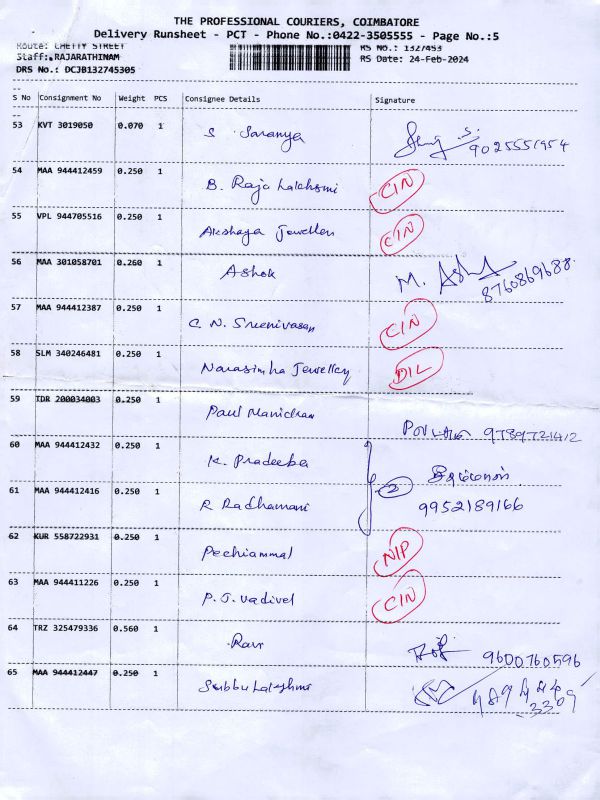 THE PROFESSIONAL COURIERS, COIMBATORE
Delivery Runsheet - PCT - Phone No.:0422-3505555 - Page No.:5
Route: CHETTY STREET RS NO.: 1327453
Staff: RAJARATHINAM RS Date: 24-Feb-2024
DRS No.: DCJB132745305
S No Consignment No Weight PCS Consignee Details Signature
53 KVT 3019050 0.070 1 S. Saranya 9025551954
54 MAA 944412459 0.250 1 B. Raja Lakshmi CIN
55 VPL 944705516 0.250 1 Akshaya Jewellers CIN
56 MAA 301058701 0.260 1 Ashok M. Ash 8760869688
57 MAA 944412387 0.250 1 C. N. Sreenivasan CIN
58 SLM 340246481 0.250 1 Narasimha Jewellery DIL
59 IDR 200034003 0.250 1 Paul Manickam 9789721412
60 MAA 944412432 0.250 1 K. Pradeeba
61 MAA 944412416 0.250 1 R Radhamani 2 9952189166
62 KUR 558722931 0.250 1 Pechiammal NIP
63 MAA 944411226 0.250 1 P. J. Vadivel CIN
64 TRZ 325479336 0.560 1 Ravi 9600760596
65 MAA 944412447 0.250 1 Subbu Lakshmi